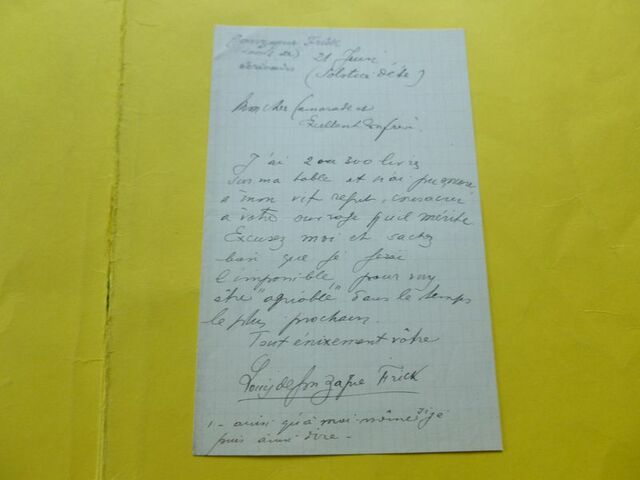 Gonzague Frick
21 Juin
(Solstice d'été)
Mon cher Camarade et
Excellent Confrère.
J'ai 2 ou 300 livres
sur ma table et n'ai pu encore
à mon vif regret, consacrer
à votre ouvrage qu'il mérite
Excusez moi et sachez
bien que je ferai
l'impossible pour vous
être "agréable" dans le temps
le plus prochain.
Tout énixement vôtre
Louis de Gonzague Frick
1 - ainsi qu'à moi-même si je
puis ainsi dire -